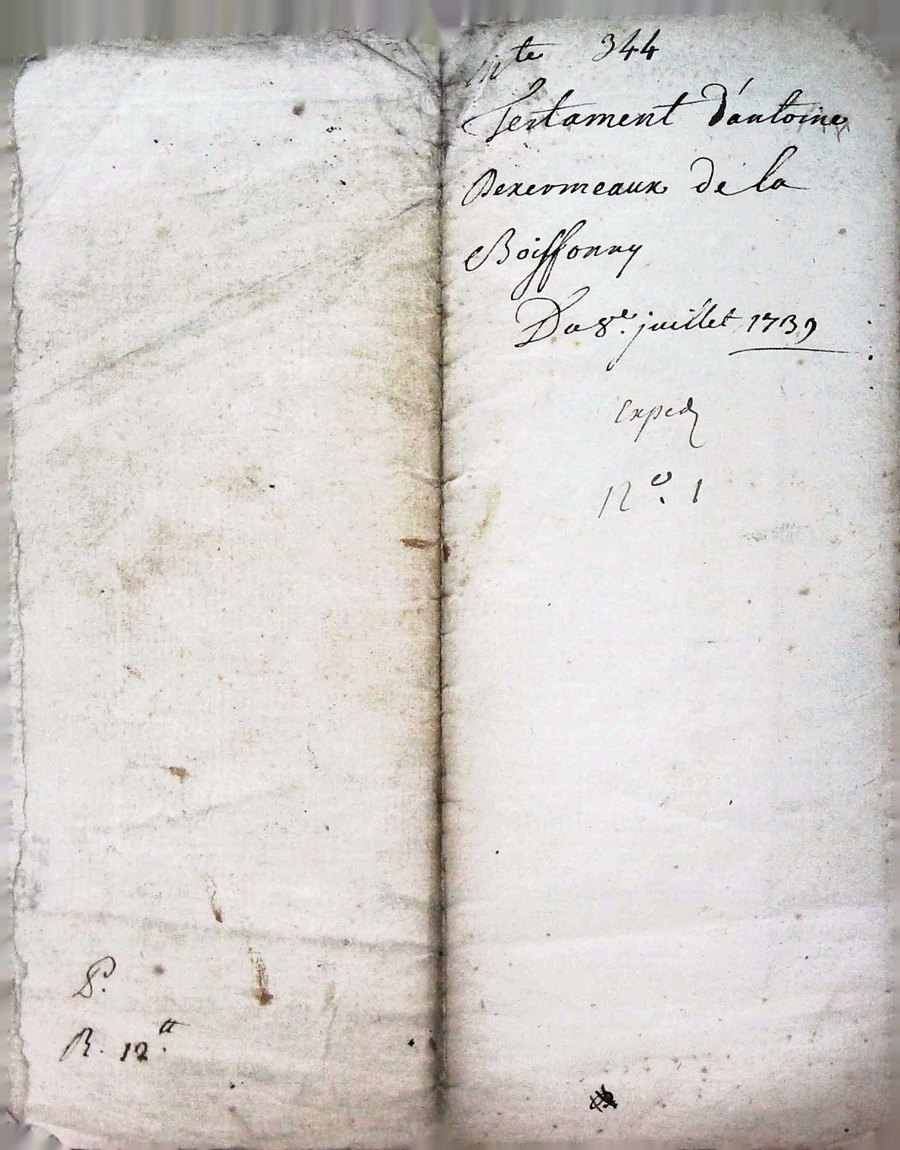 n^te 344
Testament d'antoine
de la
Boissonny
Du 8^e. juillet 1739
Exped
N^o. 1
P.
R. 12^tt